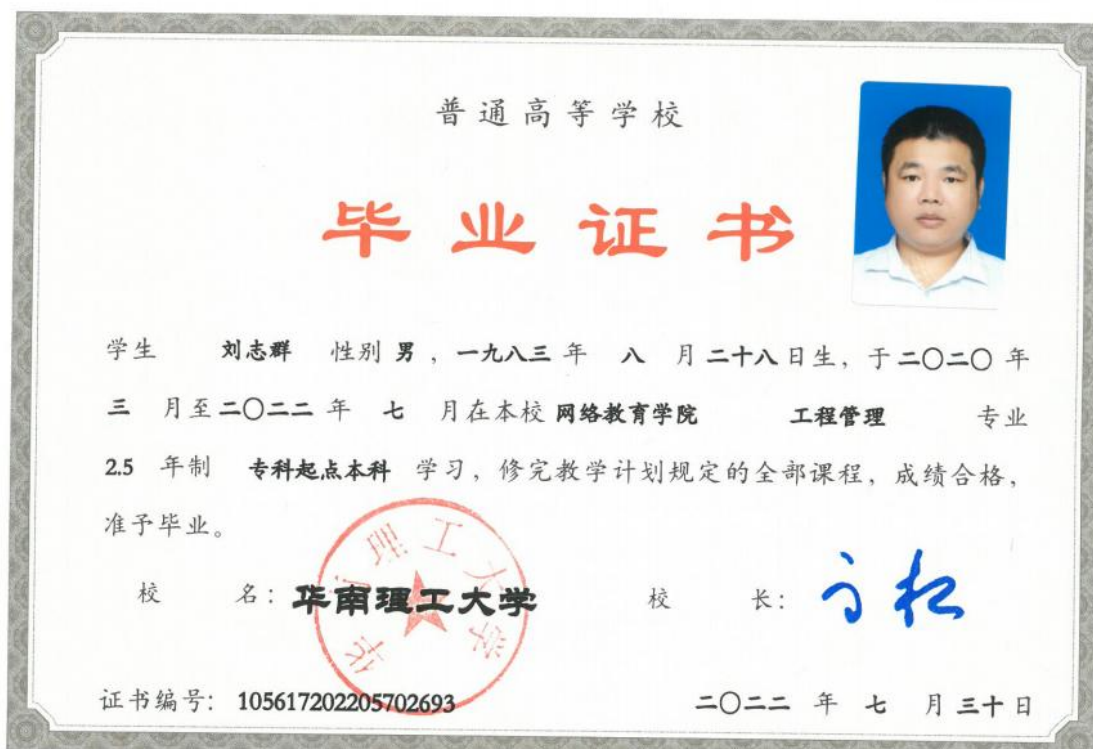 普通高等学校
毕业证书
学生 刘志群 性别 男，一九八三 年 八 月 二十八日生，于二〇二〇 年
三 月至二〇二二 年 七 月在本校 网络教育学院 工程管理 专业
2.5 年制 专科起点本科 学习，修完教学计划规定的全部课程，成绩合格，
准予毕业。
校 名：华南理工大学 校 长：
华南理工大学
证书编号：105617202205702693 二〇二二 年 七 月 三十 日